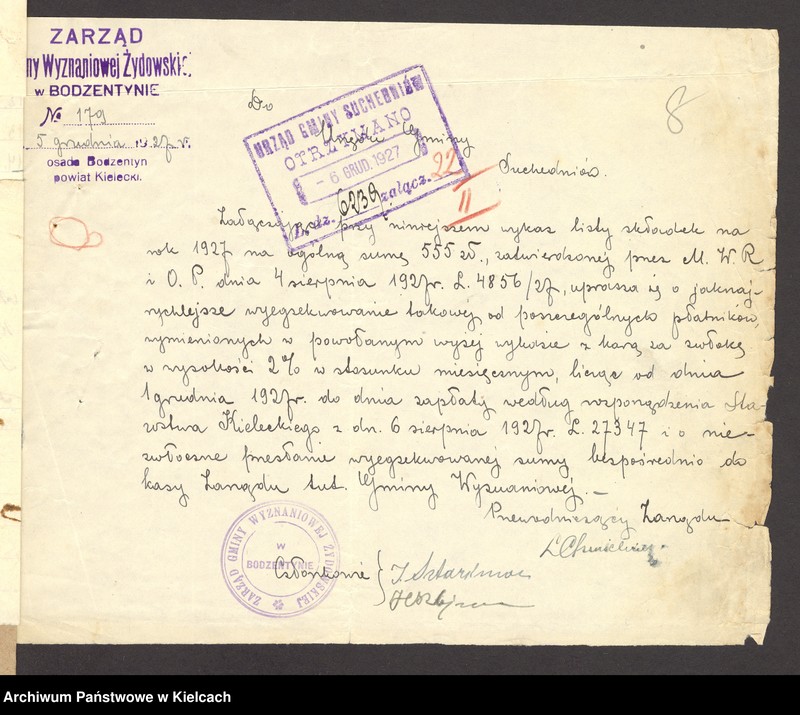 ZARZĄD
ny Wyznaniowej Żydowskiej
w BODZENTYNIE
№ 179
5 grudnia 1927 r.
osada Bodzentyn
powiat Kielecki.
8
Do
Urzędu Gminy
Suchedniów.
URZĄD GMINY SUCHEDNIÓW
OTRZYMANO
- 6 GRUD. 1927
L. dz. 6239 załącz.
22
II
Załączając przy niniejszem wykaz listy składek na
rok 1927 na ogólną sumę 555 zł., zatwierdzonej przez M. W. R
i O. P. dnia 4 sierpnia 1927r. L. 4856/27, uprasza się o jaknaj-
rychlejsze wyegzekwowanie takowej od poszczególnych płatników,
wymienionych w powołanym wyżej wykazie z karą za zwłokę
w wysokości 2% w stosunku miesięcznym, licząc od dnia
1 grudnia 1927r. do dnia zapłaty według rozporządzenia Sta-
rostwa Kieleckiego z dn. 6 sierpnia 1927r. L. 27347 i o nie-
zwłoczne przesłanie wyegzekwowanej sumy bezpośrednio do
kasy Zarządu tut. Gminy Wyznaniowej.-
Przewodniczący Zarządu
Członkowie
ZARZĄD GMINY WYZNANIOWEJ ŻYDOWSKIEJ
W
BODZENTYNIE
Archiwum Państwowe w Kielcach